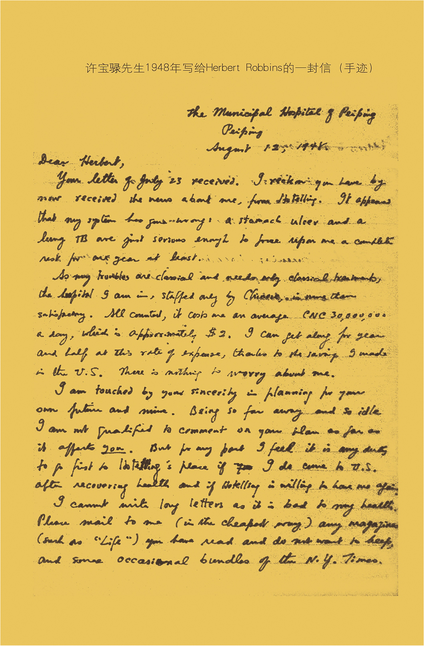 许宝騄先生1948年写给Herbert Robbins的一封信（手迹）
The Municipal Hospital of Peiping
Peiping
August 12, 1948.
Dear Herbert,
Your letter of July 23 received. I reckon you have by
now received the news about me, from Hotelling. It appears
that my system has gone wrong: a stomach ulcer and a
lung TB are just serious enough to force upon me a complete
rest for one year at least.
As my troubles are classical and needs only classical treatments,
the hospital I am in, staffed only by Chinese, is more than
satisfactory. All counted, it costs me an average CNC 30,000,000
a day, which is approximately $2. I can get along for year
and half at this rate of expense, thanks to the saving I made
in the U.S. There is nothing to worry about me.
I am touched by your sincerity in planning for your
own future and mine. Being so far away and so idle
I am not qualified to comment on your plan as far as
it affects you. But for my part I feel it is my duty
to go first to Hotelling's place if I do come to U.S.
after recovering health and if Hotelling is willing to have me again.
I cannot write long letters as it is bad to my health.
Please mail to me (in the cheapest way) any magazine
(such as "Life") you have read and do not want to keep,
and some occasional bundles of the N.Y. Times.